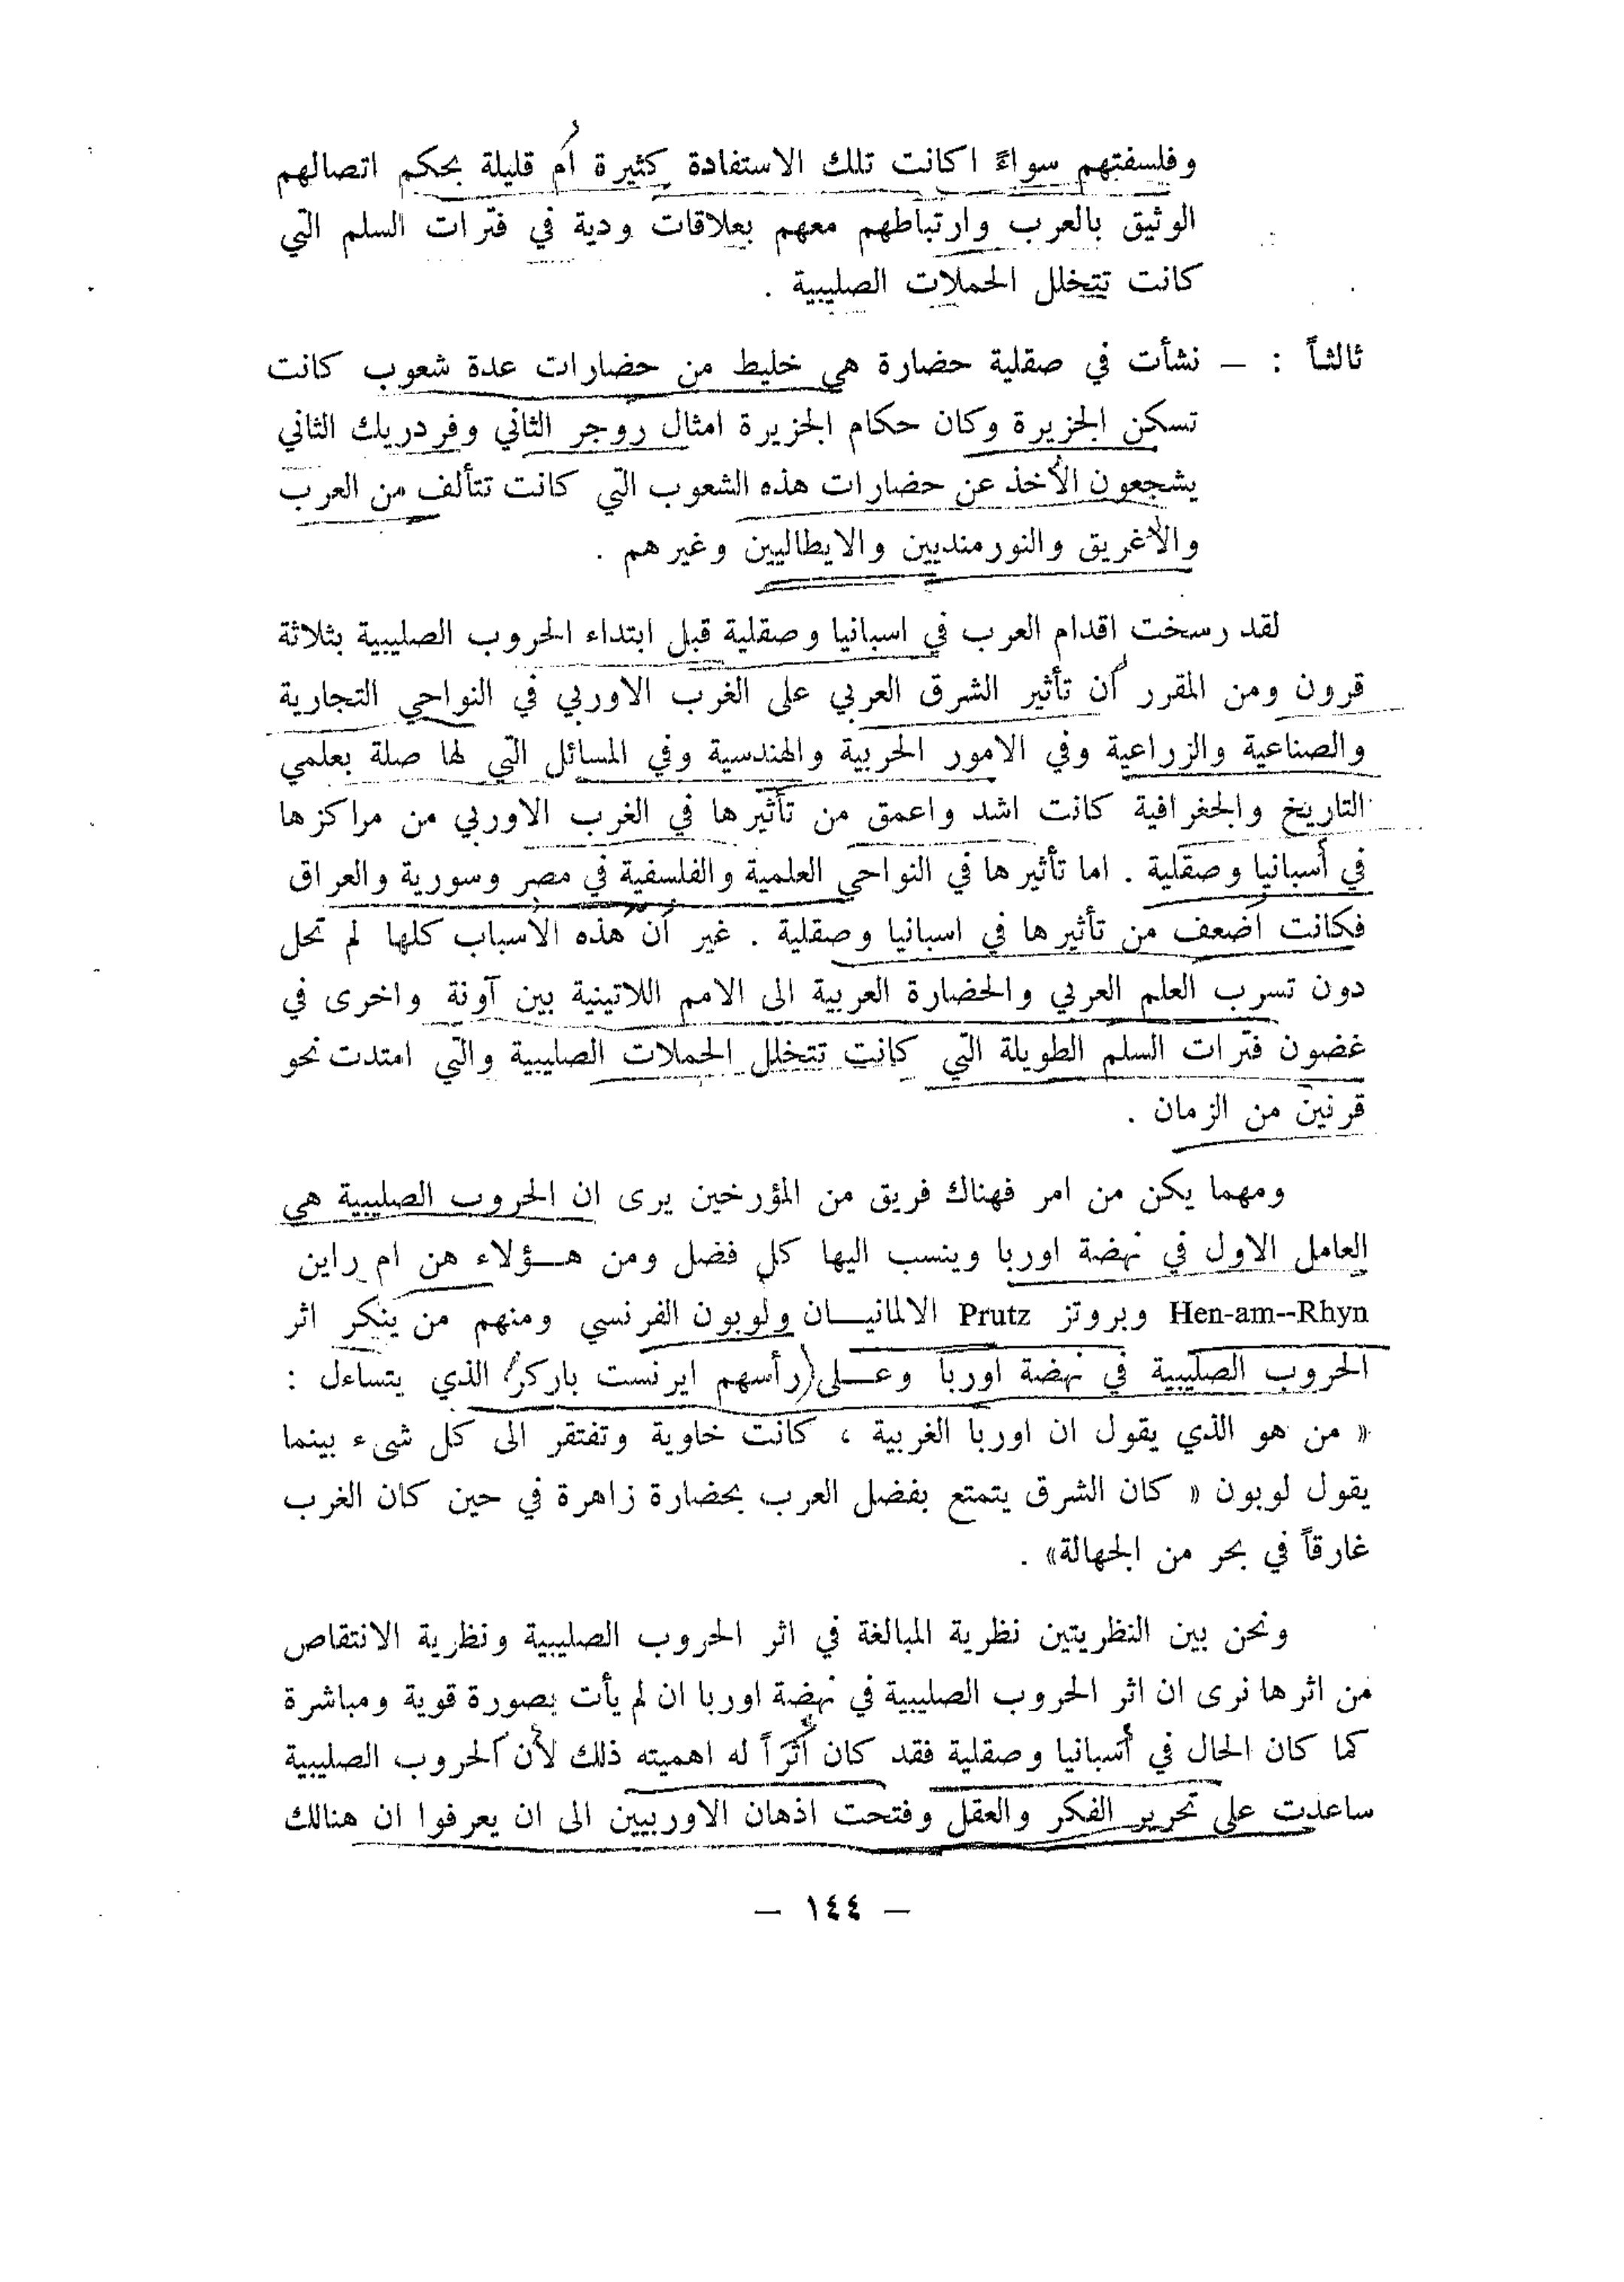 وفلسفتهم سواءً اكانت تلك الاستفادة كثيرة أم قليلة بحكم اتصالهم
الوثيق بالعرب وارتباطهم معهم بعلاقات ودية في فترات السلم التي
كانت تتخلل الحملات الصليبية .
ثالثاً : — نشأت في صقلية حضارة هي خليط من حضارات عدة شعوب كانت
تسكن الجزيرة وكان حكام الجزيرة امثال روجر الثاني وفردريك الثاني
يشجعون الأخذ عن حضارات هذه الشعوب التي كانت تتألف من العرب
والاغريق والنورمنديين والايطاليين وغيرهم .
لقد رسخت اقدام العرب في اسبانيا وصقلية قبل ابتداء الحروب الصليبية بثلاثة
قرون ومن المقرر أن تأثير الشرق العربي على الغرب الاوربي في النواحي التجارية
والصناعية والزراعية وفي الامور الحربية والهندسية وفي المسائل التي لها صلة بعلمي
التاريخ والجغرافية كانت اشد واعمق من تأثيرها في الغرب الاوربي من مراكزها
في أسبانيا وصقلية . اما تأثيرها في النواحي العلمية والفلسفية في مصر وسورية والعراق
فكانت أضعف من تأثيرها في اسبانيا وصقلية . غير أن هذه الأسباب كلها لم تحل
دون تسرب العلم العربي والحضارة العربية الى الامم اللاتينية بين آونة واخرى في
غضون فترات السلم الطويلة التي كانت تتخلل الحملات الصليبية والتي امتدت نحو
قرنين من الزمان .
ومهما يكن من امر فهناك فريق من المؤرخين يرى ان الحروب الصليبية هي
العامل الاول في نهضة اوربا وينسب اليها كل فضل ومن هـؤلاء هن ام راين
Hen-am--Rhyn وبروتز Prutz الالمانيـان ولوبون الفرنسي ومنهم من ينكر اثر
الحروب الصليبية في نهضة اوربا وعـلى (رأسهم ايرنست باركر/ الذي يتساءل :
« من هو الذي يقول ان اوربا الغربية ، كانت خاوية وتفتقر الى كل شىء بينما
يقول لوبون « كان الشرق يتمتع بفضل العرب بحضارة زاهرة في حين كان الغرب
غارقاً في بحر من الجهالة» .
ونحن بين النظريتين نظرية المبالغة في اثر الحروب الصليبية ونظرية الانتقاص
من اثرها نرى ان اثر الحروب الصليبية في نهضة اوربا ان لم يأت بصورة قوية ومباشرة
كما كان الحال في أسبانيا وصقلية فقد كان أثراً له اهميته ذلك لأن الحروب الصليبية
ساعدت على تحرير الفكر والعقل وفتحت اذهان الاوربيين الى ان يعرفوا ان هنالك
— ١٤٤ —